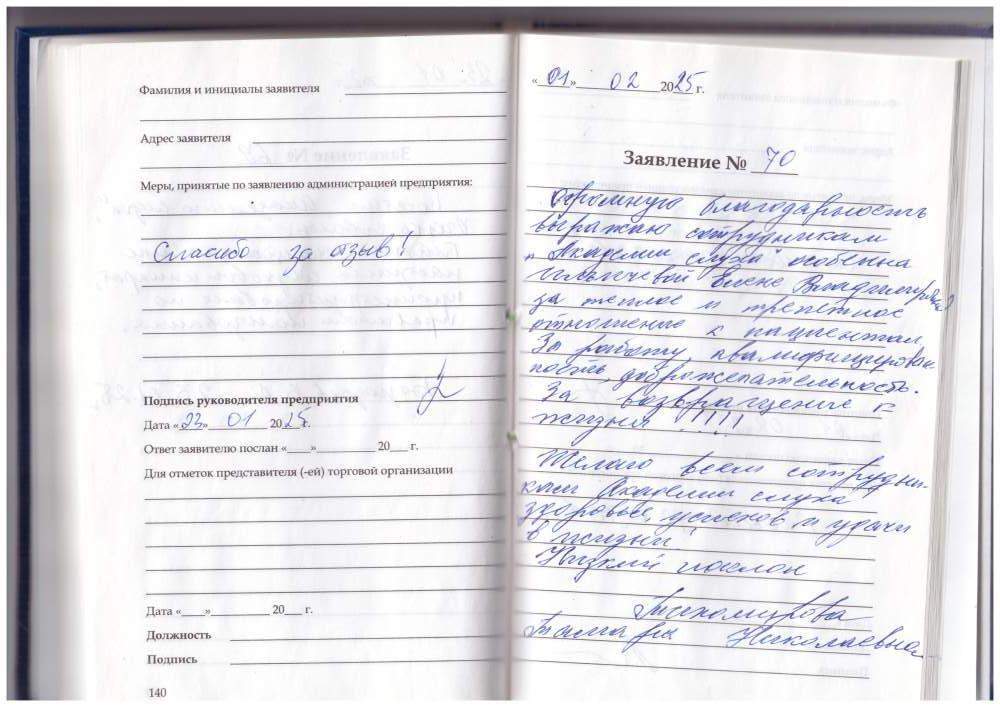 Фамилия и инициалы заявителя
Адрес заявителя
Меры, принятые по заявлению администрацией предприятия:
Спасибо за отзыв!
Подпись руководителя предприятия
Дата «23» 01 2025 г.
Ответ заявителю послан «___» 20___ г.
Для отметок представителя (-ей) торговой организации
Дата «___» 20___ г.
Должность
Подпись
140
«01» 02 2025 г.
Заявление № 70
Огромную благодарность
выражаю сотрудникам
"Академии слуха" особенна
Елене Владимировне
за теплое и трепетное
отношение к пациентам
За работу, квалифицирован
ность, доброжелательность.
За возвращение к
жизни !!!!!
Желаю всем сотрудни-
кам Академии слуха
здоровье, успехов и удачи
в жизни!
Низкий поклон
Тихомирова
Тамара Николаевна